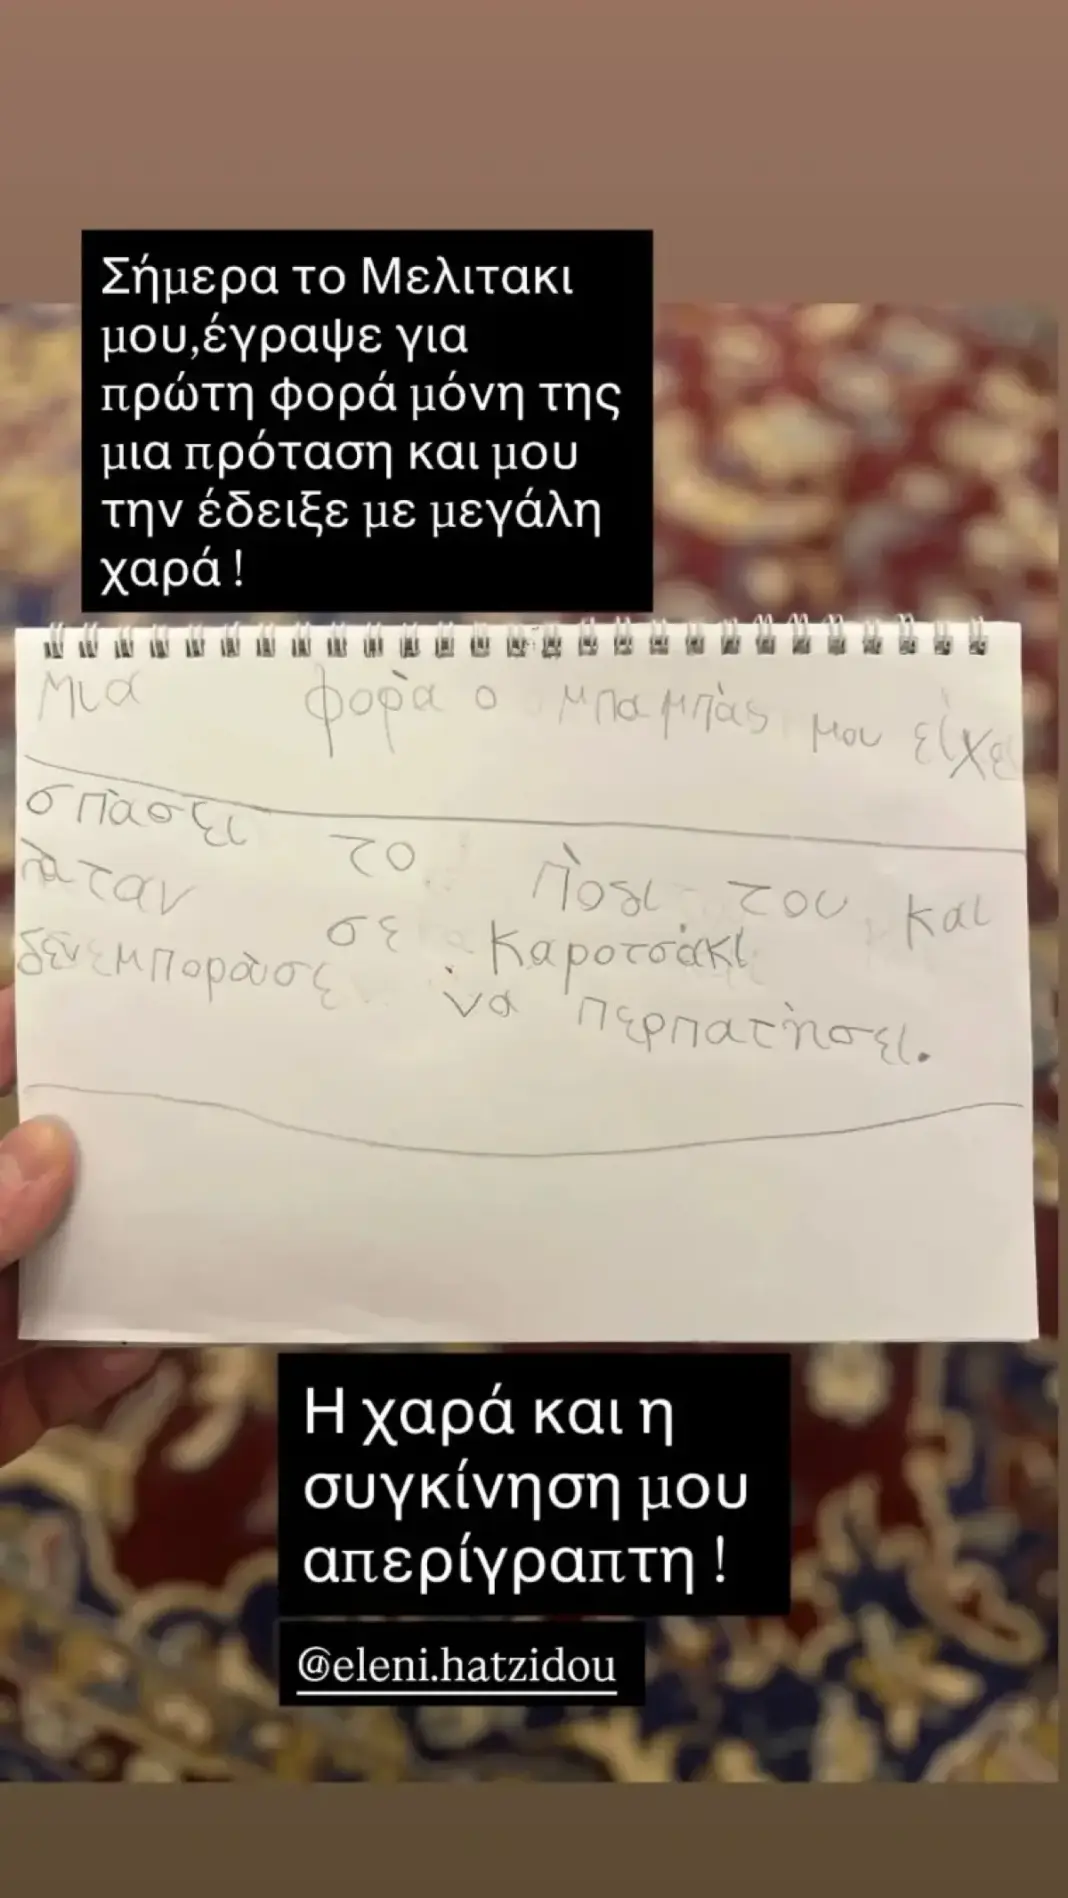 Σήμερα το Μελιτακι
μου,έγραψε για
πρώτη φορά μόνη της
μια πρόταση και μου
την έδειξε με μεγάλη
χαρά !
μια φορὰ ο μπαμπὰς μου είχε
σπὰσει το Πὸδι του και
ὴταν σε καροτσὰκι
δενεμπορὰσε να περπατὴσει.
Η χαρά και η
συγκίνηση μου
απερίγραπτη !
@eleni.hatzidou